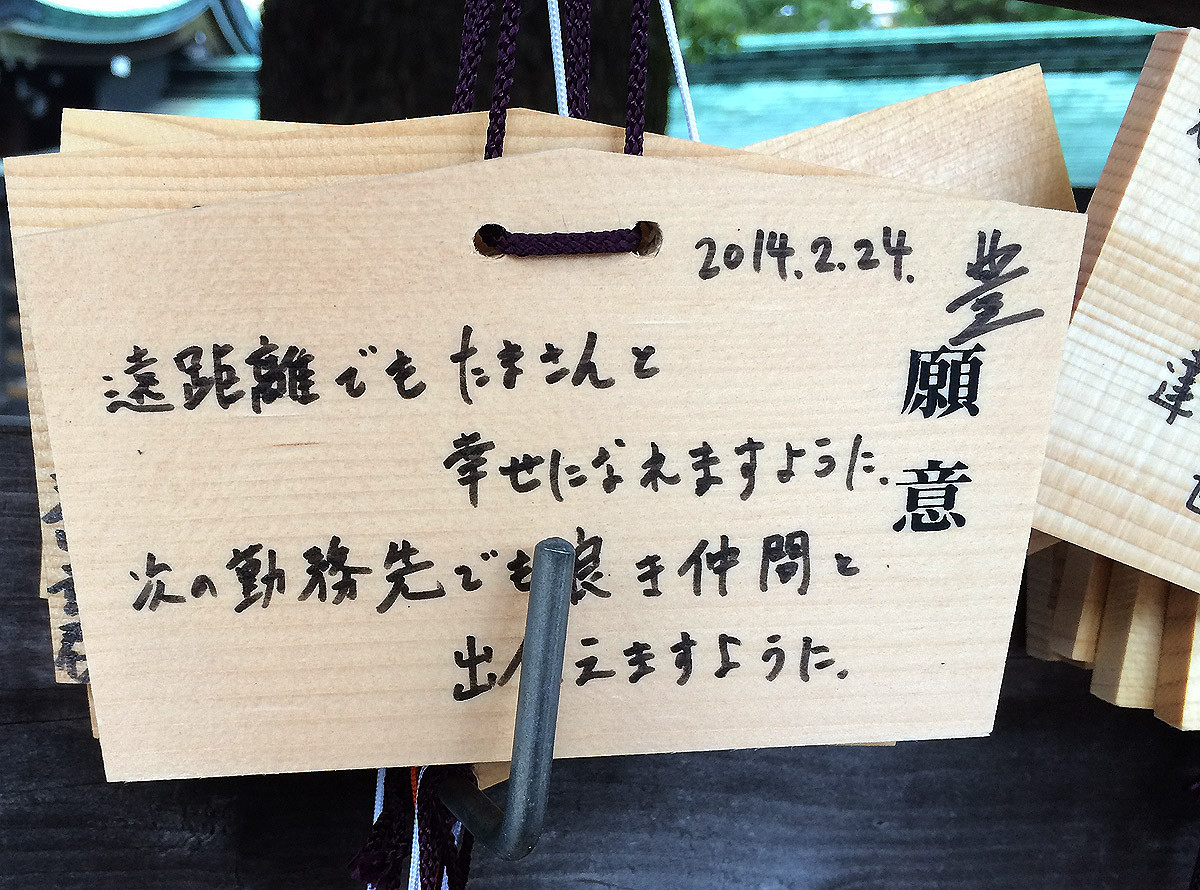 2014.2.24.
豊
願意
遠距離でもたまさんと
幸せになれますように.
次の勤務先でも良き仲間と
出会えますように.
達